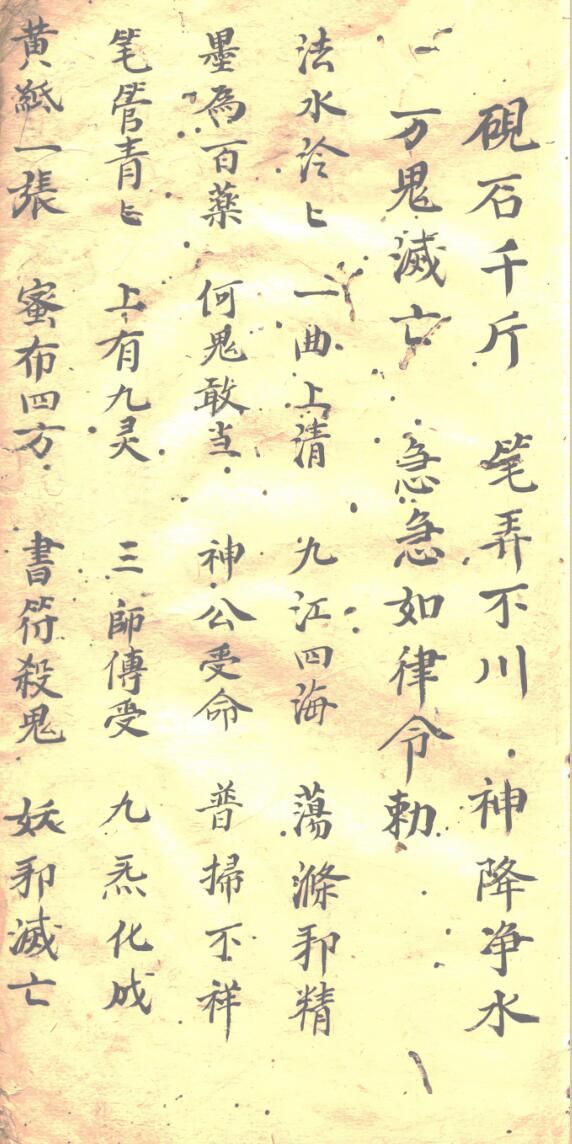 硯石千斤 笔弄不川 神降净水
万鬼滅亡 急急如律令勅
法水泠〻 一曲上清 九江四海 蕩滌邪精
墨為百藥 何鬼敢当 神公受命 普掃不祥
笔管青〻 上有九灵 三師傳受 九炁化成
黄紙一張 蜜布四方 書符殺鬼 妖邪滅亡